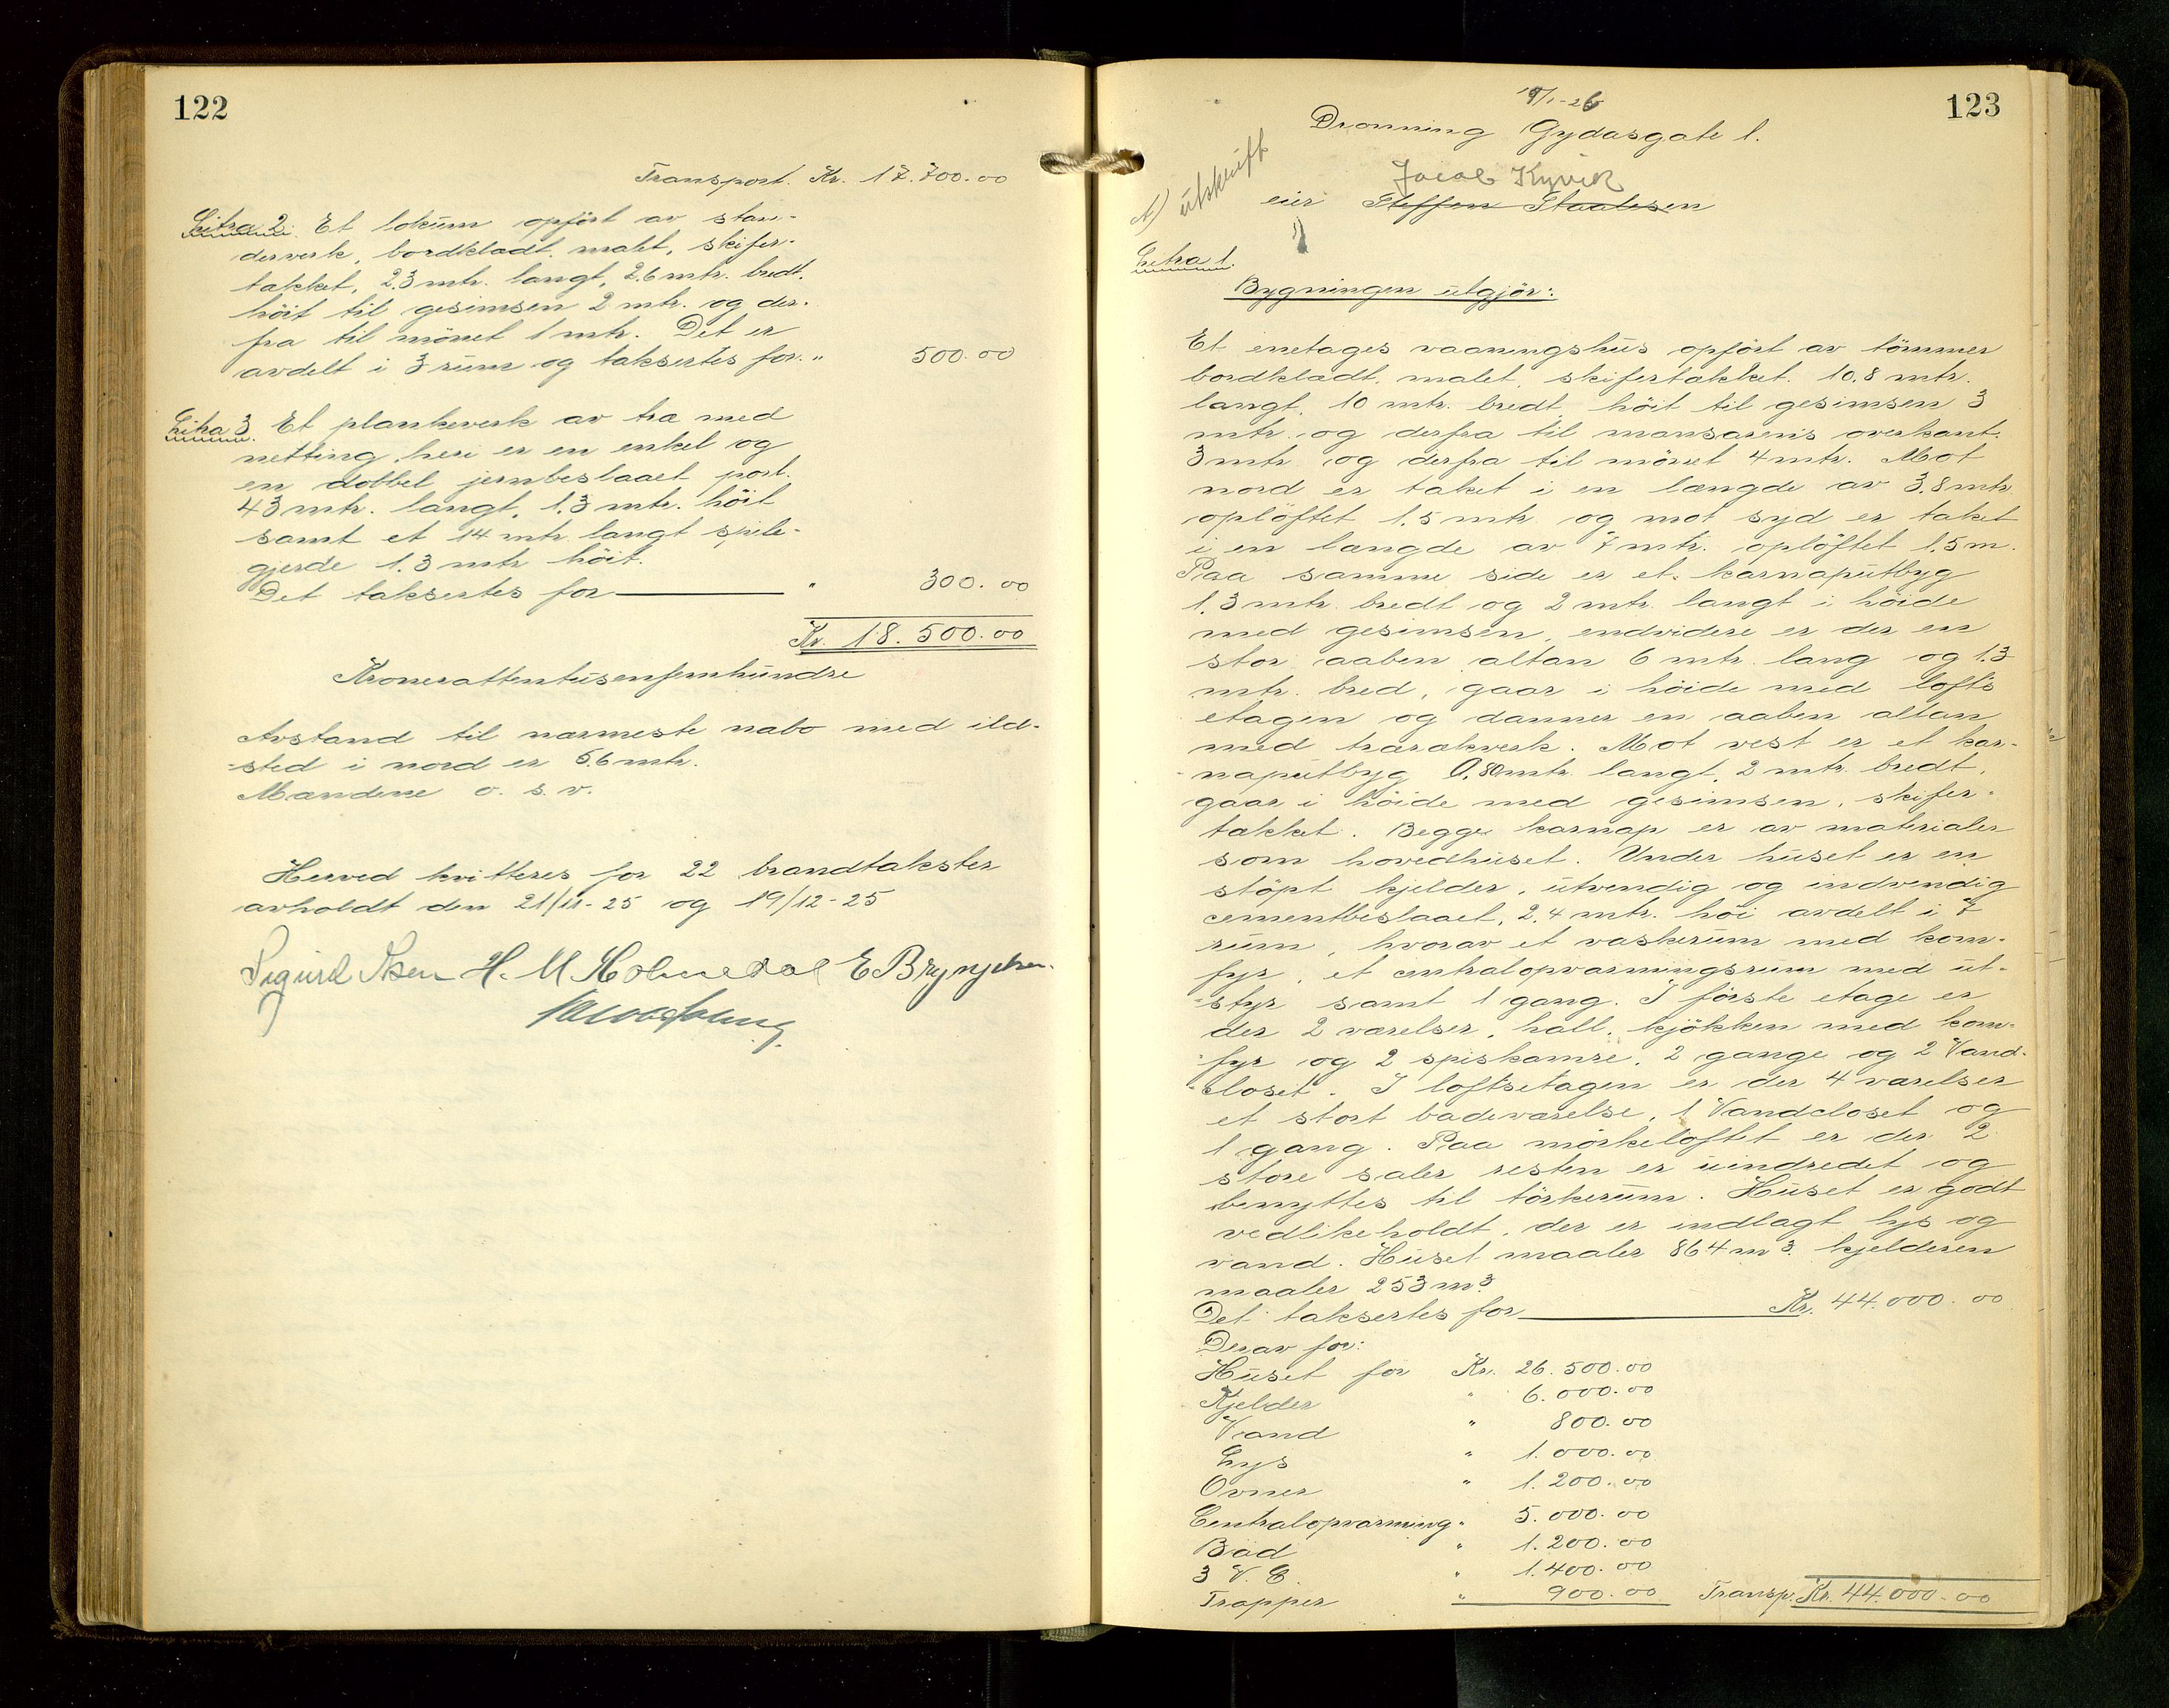 122
Transport. Kr. 17.700.00
Litra 2. Et lokum opfört av stan-
derverk, bordklædt, malt, skifer-
takket, 2.3 mtr. langt, 2.6 mtr. bredt.
höit til gesimsen 2 mtr. og der-
fra til mönet 1 mtr. Det er
avdelt i 3 rum og taksertes for. " 500.00
Litra 3 Et plankeverk av træ med
netting, heri er en enkel og
en dobbel jernbeslaaet port.
43 mtr. langt, 1.3 mtr. höit
samt et 14 mtr. langt spile-
gjerde 1.3 mtr höit.
Det taksertes for " 300.00
Kr. 18.500.00
Kronerattentusenfemhundre
Avstand til nærmeste nabo med ild-
-sted i nord er 5.6 mtr.
Mændene o. s. v.
Herved kvitteres for 22 brandtakster
avholdt den 21/11-25 og 19/12-25
Sigurd H. M Holmedal E Brynjelsen.
123
19/1-26
Dronning Gydasgate 1.
Jacob Kyvik
A) utskrift
eier Steffen Staalesen
Litra 1.
Bygningen utgjör:
Et enetages vaaningshus opfört av tömmer
bordklædt, malet, skifertakket. 10.8 mtr.
langt, 10 mtr. bredt, höit til gesimsen 3
mtr. og derfra til mansarens overkant.
3 mtr og derfra til mönet 4 mtr. Mot
nord er taket i en længde av 3.8 mtr
oplöftet 1.5 mtr og mot syd er taket
i en længde av 7 mtr. oplöftet 1.5 m.
Paa samme side er et karnaputbyg
1.3 mtr. bredt og 2 mtr. langt i höide
med gesimsen, endvidere er der en
stor aaben altan 6 mtr. lang og 1.3
mtr. bred, gaar i höide med lofts
etagen og danner en aaben altan
med trærækverk. Mot vest er et kar-
-naputbyg 0.80 mtr. langt, 2 mtr. bredt,
gaar i höide med gesimsen, skifer-
takket. Begge karnap er av materialer
som hovedhuset. Under huset er en
stöpt kjelder, utvendig og indvendig
cementbeslaaet, 2.4 mtr. höi avdelt i 7
rum, hvorav et vaskerum med kom-
fyr, et centralopvarmingsrum med ut-
-styr samt 1 gang. I förste etage er
der 2 værelser, hall, kjökken med kom-
-fyr og 2 spiskamre, 2 gange og 2 Vand-
-closet. I loftsetagen er der 4 værelser
et stort badeværelse, 1 Vandcloset og
1 gang. Paa mörkeloftet er der 2
store saler resten er uindredet og
benyttes til törkerum. Huset er godt
vedlikeholdt, der er indlagt lys og
vand. Huset maaler 864 m3. kjelderen
maaler 253 m3
Det taksertes for Kr. 44.000.00
Derav for:
Huset for Kr. 26.500.00
Kjelder " 6.000.00
Vand " 800.00
Lys " 1.000.00
Ovner " 1.200.00
Centralopvarming " 5.000.00
Bad " 1.200.00
3 V. C. " 1.400.00
Trapper " 900.00 Transp. Kr. 44.000.00